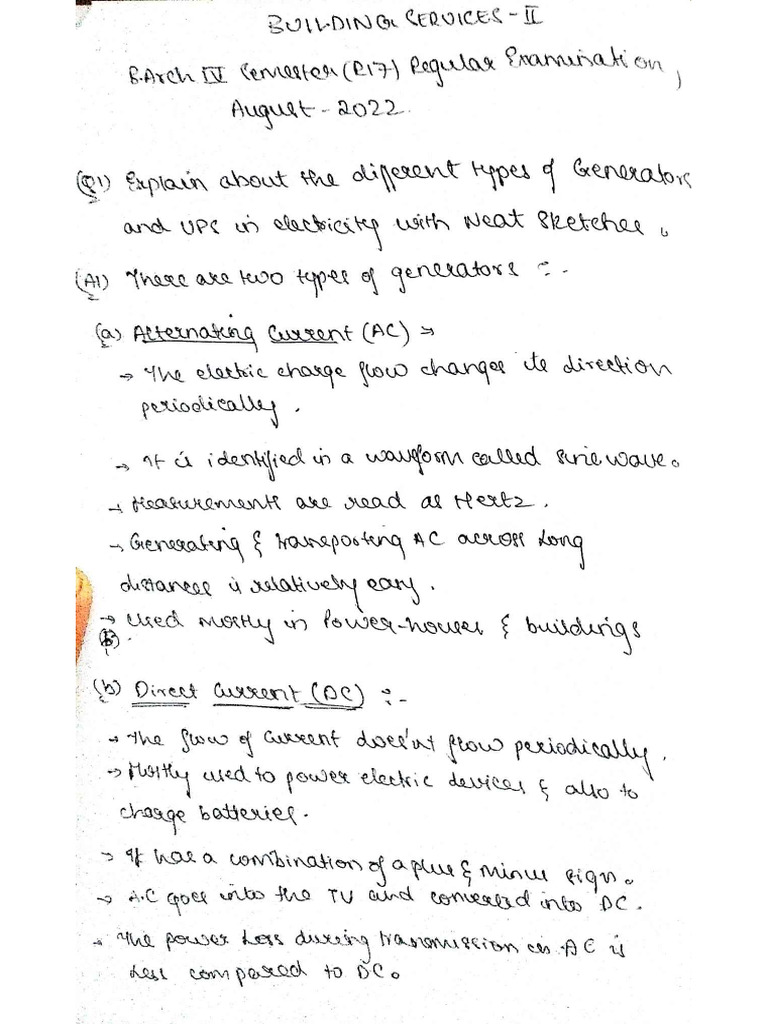 BUILDING SERVICES - II
B.Arch IV Semester (R17) Regular Examination,
August - 2022.
(Q1) Explain about the different types of Generators
and UPS in electricity with Neat Sketches.
(A1) There are two types of generators :-
(a) Alternating Current (AC) →
→ The electric charge flow changes its direction
periodically.
→ It is identified in a waveform called sine wave.
→ Measurements are read as Hertz.
→ Generating & transporting AC across long
distances is relatively easy.
→ Used mostly in Power-houses & buildings
(b)
(b) Direct Current (DC) :-
→ The flow of current does'nt flow periodically.
→ Mostly used to power electric devices & also to
charge batteries.
→ It has a combination of a plus & minus sign.
→ A.C goes into the TV and converted into DC.
→ The power loss during transmission in AC is
less compared to DC.